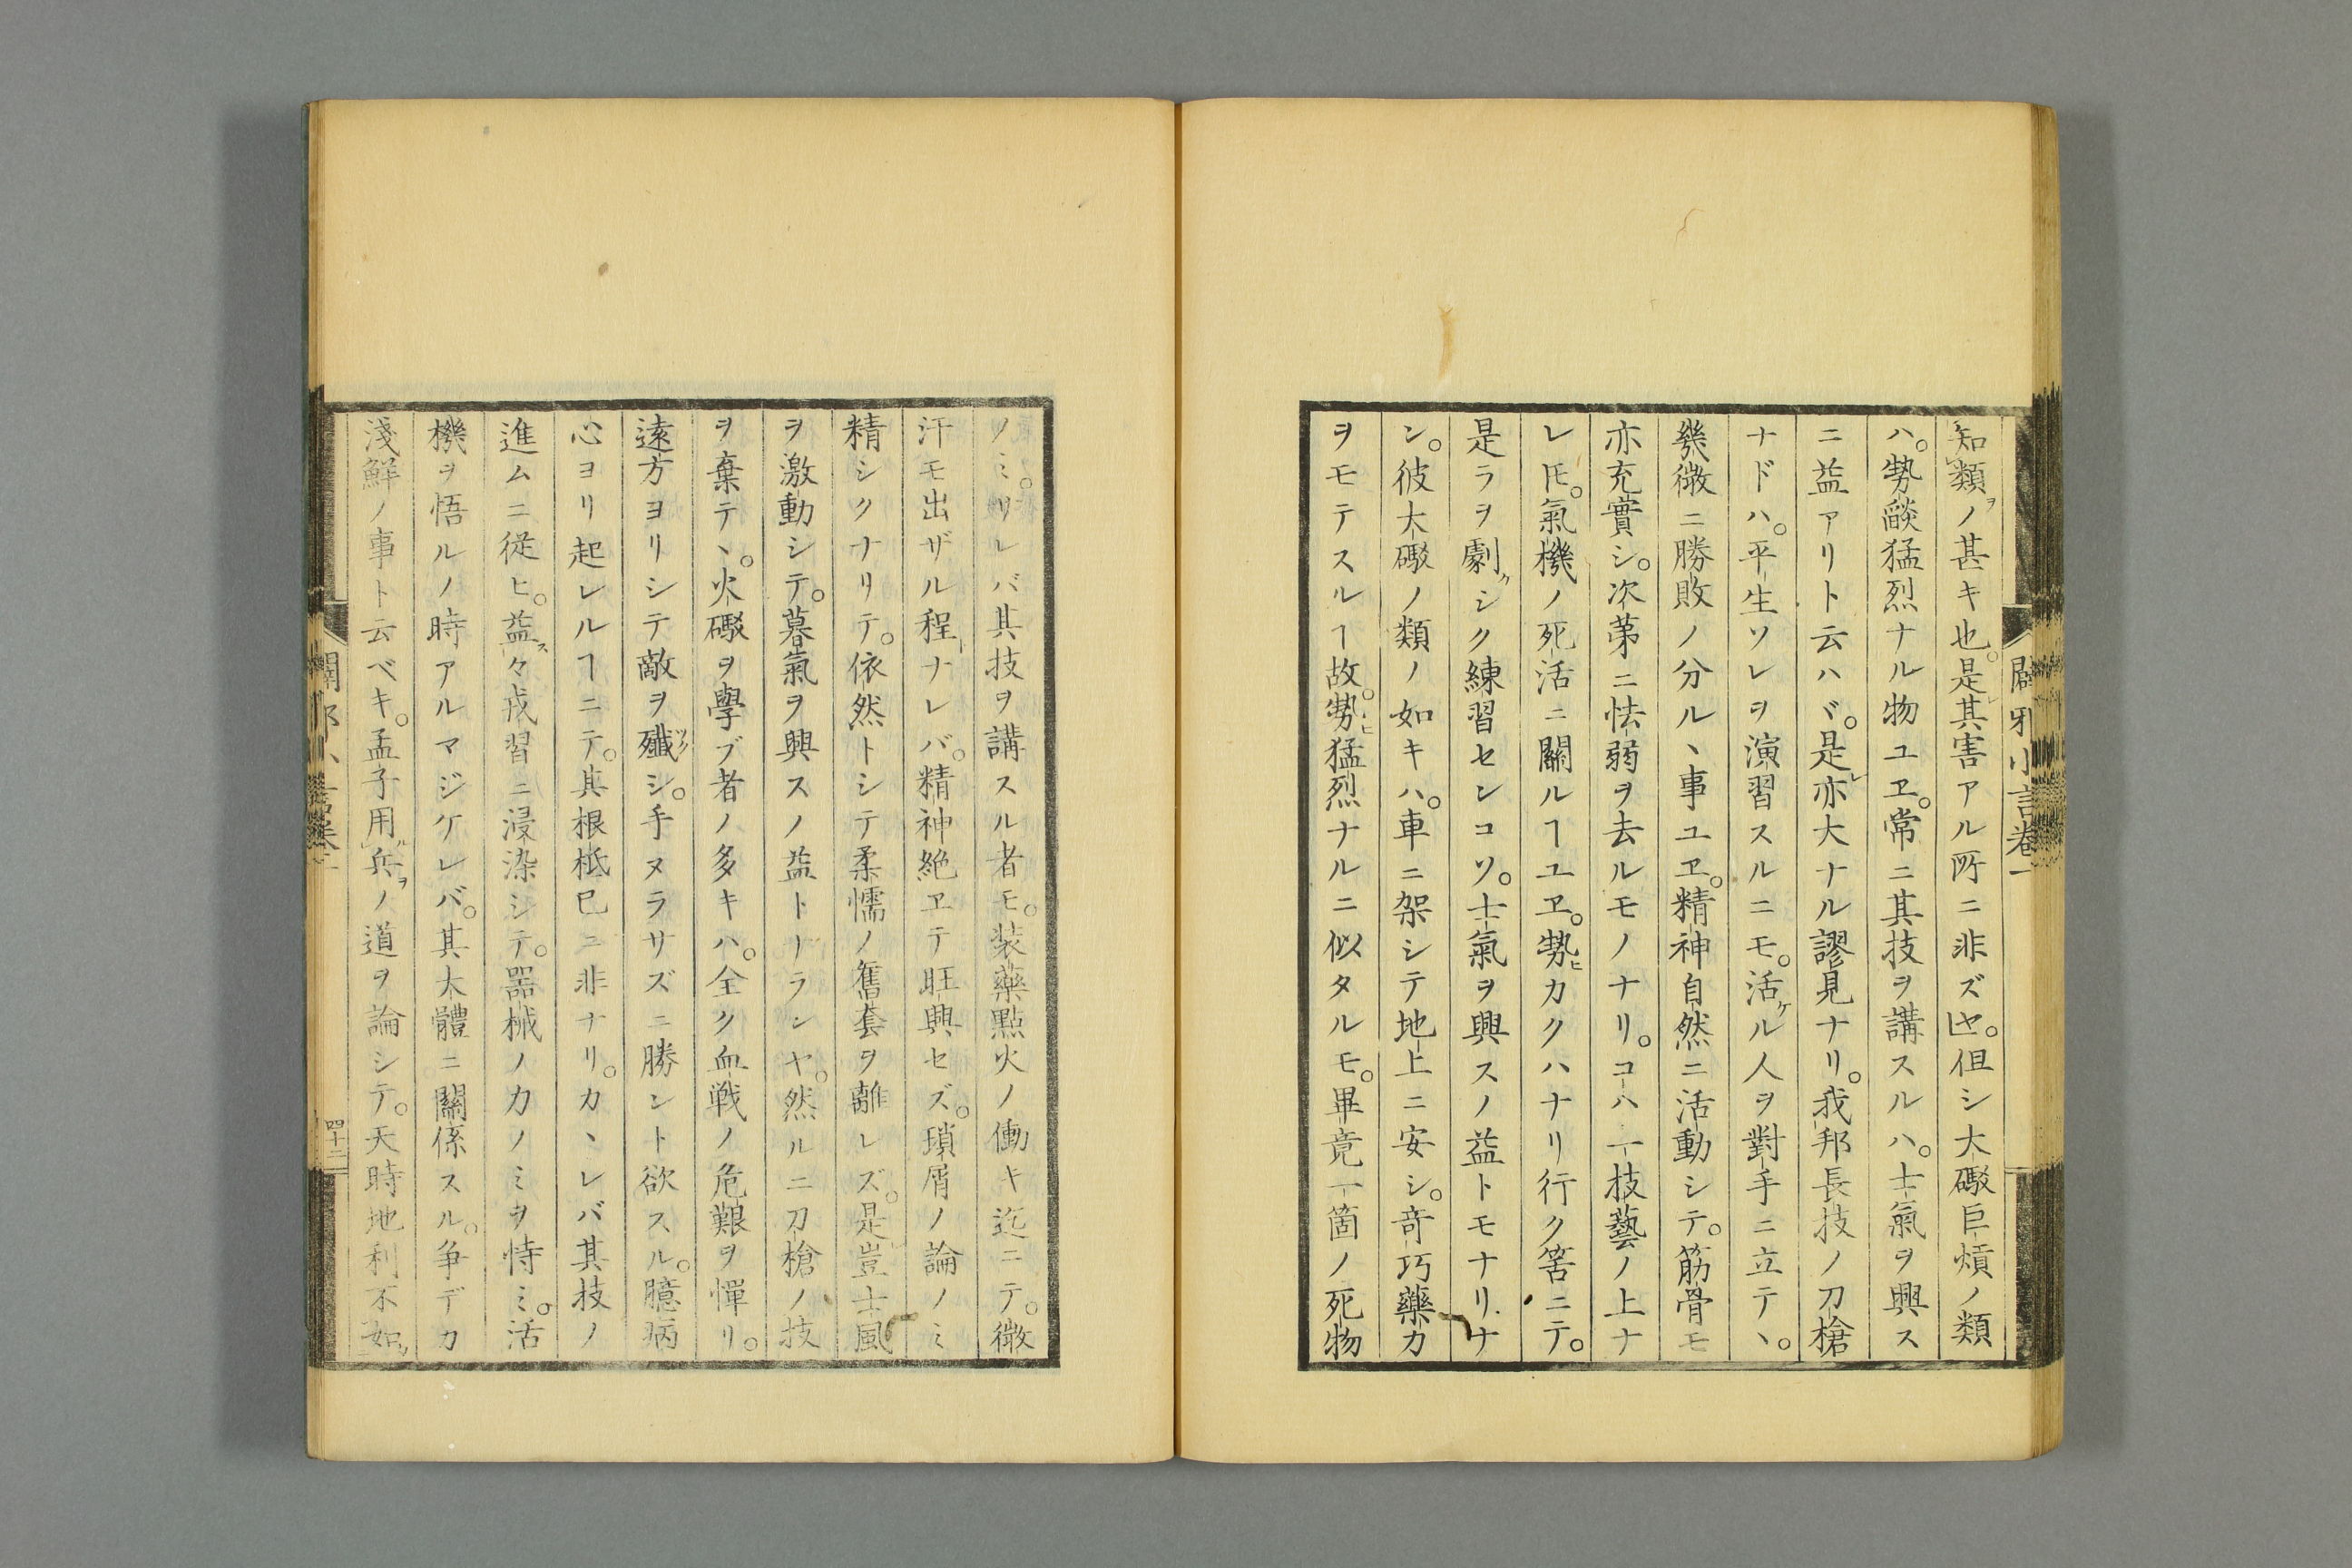 知類ヲノ甚キ也。是レ其害アル所ニ非ズヤ。但シ大礮巨熕ノ類
ハ。勢燄猛烈ナル物ユヱ。常ニ其技ヲ講スルハ。士氣ヲ興ス
ニ益アリト云ハヾ。是レ亦大ナル謬見ナリ。我邦長技ノ刀槍
ナドハ。平生ソレヲ演習スルニモ。活ケル人ヲ對手ニ立テヽ。
幾微ニ勝敗ノ分ルヽ事ユヱ。精神自然ニ活動シテ。筋骨モ
亦充實シ。次第ニ怯弱ヲ去ルモノナリ。コハ一技藝ノ上ナ
レ𪜈。氣機ノ死活ニ關ルヿユヱ。勢ヒカクハナリ行ク筈ニテ。
是ラヲ劇シク練習センコソ。士氣ヲ興スノ益トモナリナ
ン。彼大礮ノ類ノ如キハ。車ニ架シテ地上ニ安シ。奇巧藥力
ヲモテスルヿ故。勢ヒ猛烈ナルニ似タルモ。畢竟一箇ノ死物
闢邪小言卷一
ノミ。サレバ其技ヲ講スル者モ。装藥點火ノ働キ迄ニテ。微
汗モ出ザル程ナレバ。精神絶ヱテ旺興セズ。瑣屑ノ論ノミ
精シクナリテ。依然トシテ柔懦ノ舊套ヲ離レズ。是レ豈士風
ヲ激動シテ。暮氣ヲ興スノ益トナランヤ。然ルニ刀槍ノ技
ヲ棄テヽ。火礮ヲ學ブ者ノ多キハ。全ク血戦ノ危艱ヲ憚リ。
遠方ヨリシテ敵ヲ殲ツクシ。手ヌラサズニ勝ント欲スル。臆病
心ヨリ起レルヿニテ。其根柢已ニ非ナリ。カヽレバ其技ノ
進ムニ従ヒ。益ス々戎習ニ浸染シテ。器械ノ力ノミヲ恃ミ。活
機ヲ悟ルノ時アルマジケレバ。其大體ニ關係スル。争デカ
淺鮮ノ事ト云ベキ。孟子用ルレ兵ヲノ道ヲ論シテ。天時地利不如
四十二